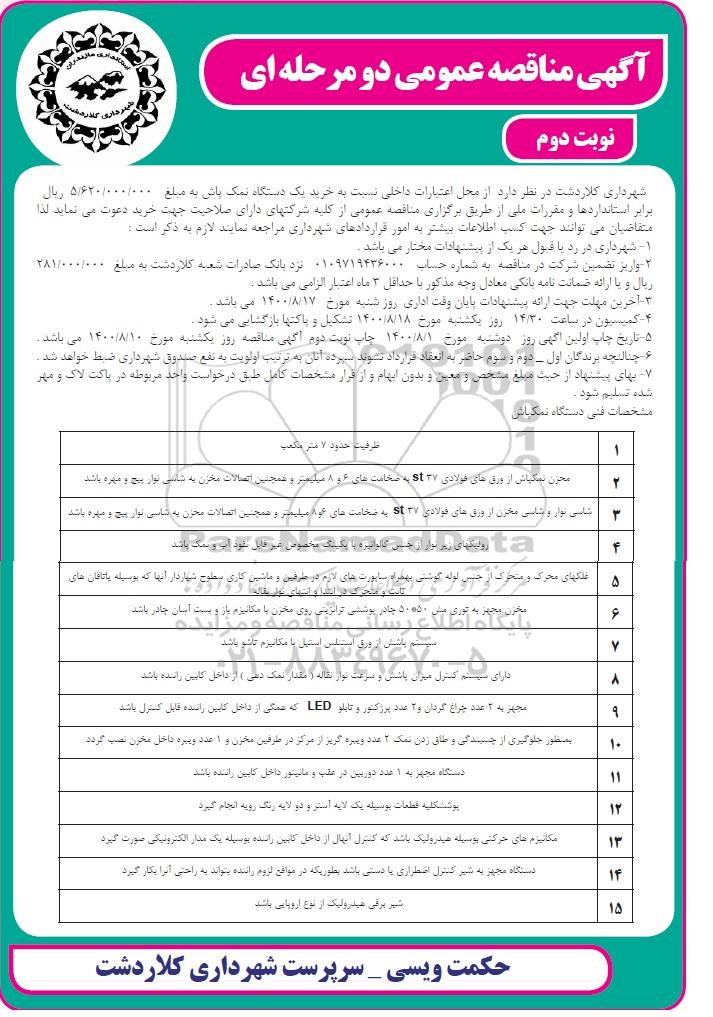 استانداری مازندران
شهرداری کلاردشت
آگهی مناقصه عمومی دو مرحله ای
نوبت دوم
شهرداری کلاردشت در نظر دارد از محل اعتبارات داخلی نسبت به خرید یک دستگاه نمک پاش به مبلغ ۵/۶۲۰/۰۰۰/۰۰۰ ریال
برابر استانداردها و مقررات ملی از طریق برگزاری مناقصه عمومی از کلیه شرکتهای دارای صلاحیت جهت خرید دعوت می نماید لذا
متقاضیان می توانند جهت کسب اطلاعات بیشتر به امور قراردادهای شهرداری مراجعه نمایند لازم به ذکر است :
۱- شهرداری در رد یا قبول هر یک از پیشنهادات مختار می باشد .
۲-واریز تضمین شرکت در مناقصه به شماره حساب ۰۱۰۹۷۱۹۴۳۶۰۰۰ نزد بانک صادرات شعبه کلاردشت به مبلغ ۲۸۱/۰۰۰/۰۰۰
ریال و یا ارائه ضمانت نامه بانکی معادل وجه مذکور با حداقل ۳ ماه اعتبار الزامی می باشد .
۳-آخرین مهلت جهت ارائه پیشنهادات پایان وقت اداری روز شنبه مورخ ۱۴۰۰/۸/۱۷ می باشد .
۴-کمیسیون در ساعت ۱۴/۳۰ روز یکشنبه مورخ ۱۴۰۰/۸/۱۸ تشکیل و پاکتها بازگشایی می شود .
۵-تاریخ چاپ اولین اگهی روز دوشنبه مورخ ۱۴۰۰/۸/۱ چاپ نوبت دوم آگهی مناقصه روز یکشنبه مورخ ۱۴۰۰/۸/۱۰ می باشد .
۶-چنانچه برندگان اول _ دوم و سوم حاضر به انعقاد قرارداد نشوند سپرده آنان به ترتیب اولویت به نفع صندوق شهرداری ضبط خواهد شد .
۷- بهای پیشنهاد از حیث مبلغ مشخص و معین و بدون ابهام و از قرار مشخصات کامل طبق درخواست واحد مربوطه در پاکت لاک و مهر
شده تسلیم شود .
مشخصات فنی دستگاه نمکپاش
۱ ظرفیت حدود ۷ متر مکعب
۲ مخزن نمکپاش از ورق های فولادی st ۳۷ به ضخامت های ۶ و ۸ میلیمتر و همچنین اتصالات مخزن به شاسی نوار پیچ و مهره باشد
۳ شاسی نوار و شاسی مخزن از ورق های فولادی st ۳۷ به ضخامت های ۶و۸ میلیمتر و همچنین اتصالات مخزن به شاسی نوار پیچ و مهره باشد
۴ رولیکهای زیر نوار از جنس گالوانیزه با پکینگ مخصوص غیر قابل نفوذ آب و نمک باشد
۵ غلکهای محرک و متحرک از جنس لوله گوشتی بهمراه ساپورت های لازم در طرفین و ماشین کاری سطوح شیاردار آنها که بوسیله یاتاقان های
ثابت و متحرک در ابتدا و انتهای نوار نقاله
۶ مخزن مجهز به توری مش ۵۰*۵۰ چادر پوششی ترانزیتی روی مخزن با مکانیزم باز و بست آسان چادر باشد
۷ سیستم پاشش از ورق استنلس استیل با مکانیزم تاشو باشد
۸ دارای سیستم کنترل میزان پاشش و سرعت نوار نقاله ( مقدار نمک دهی ) از داخل کابین راننده باشد
۹ مجهز به ۲ عدد چراغ گردان و۲ عدد پرژکتور و تابلو LED که همگی از داخل کابین راننده قابل کنترل باشد
۱۰ بمنظور جلوگیری از چسبندگی و طاق زدن نمک ۲ عدد ویبره گریز از مرکز در طرفین مخزن و ۱ عدد ویبره داخل مخزن نصب گردد
۱۱ دستگاه مجهز به ۱ عدد دوربین در عقب و مانیتور داخل کابین راننده باشد
۱۲ پوششکلیه قطعات بوسیله یک لایه آستر و دو لایه رنگ رویه انجام گیرد
۱۳ مکانیزم های حرکتی بوسیله هیدرولیک باشد که کنترل آنهال از داخل کابین راننده بوسیله یک مدار الکترونیکی صورت گیرد
۱۴ دستگاه مجهز به شیر کنترل اضطراری یا دستی باشد بطوریکه در مواقع لزوم راننده بتواند به راحتی آنرا بکار گیرد
۱۵ شیر برقی هیدرولیک از نوع اروپایی باشد
ParsNamadData
پایگاه اطلاع رسانی مناقصه و مزایده
۰۲۱-۸۸۳۴۹۶۷۰-۵
حکمت ویسی _ سرپرست شهرداری کلاردشت